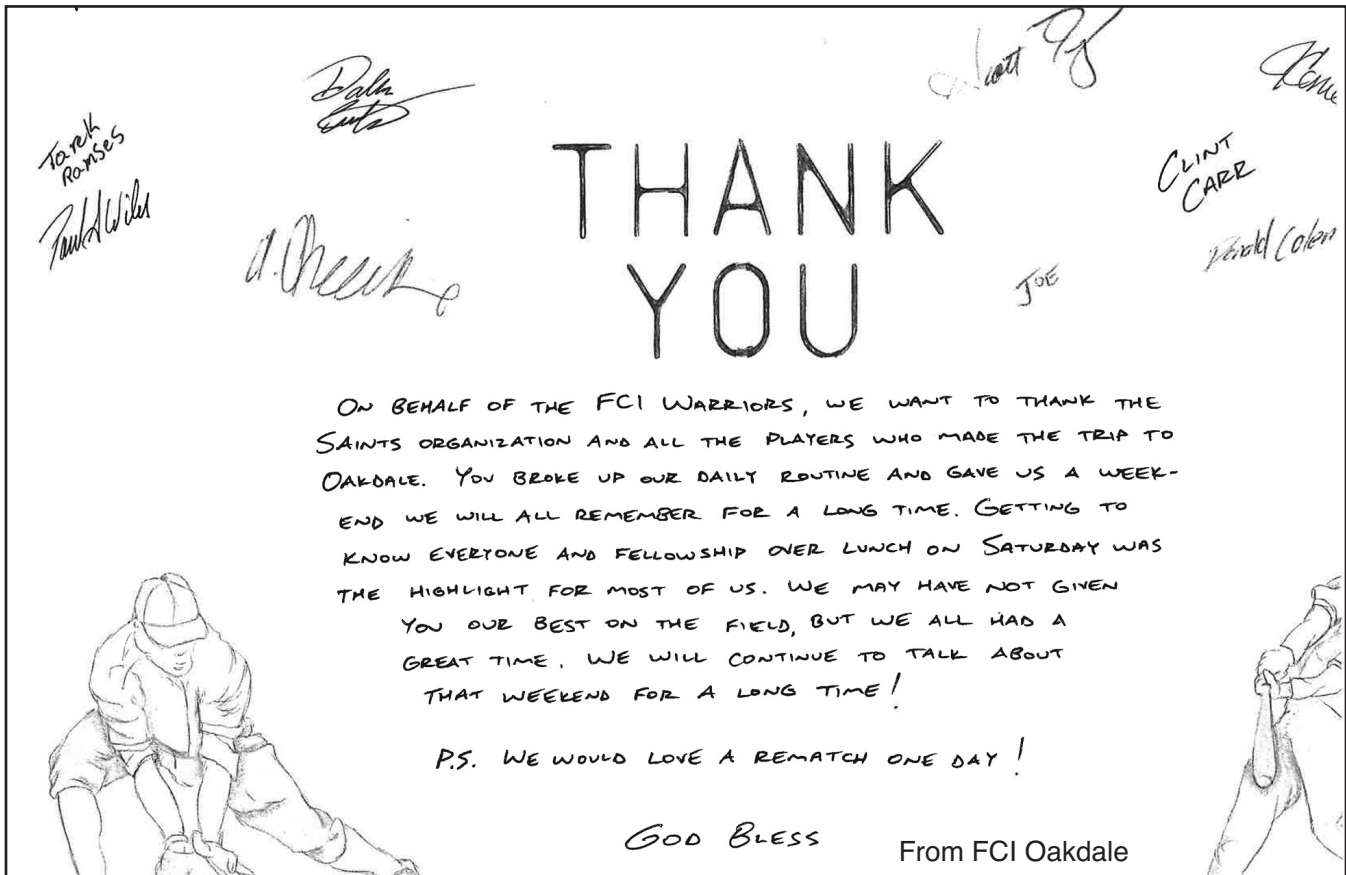 Scott
Tarek
Ramses
CLINT
CARR
Donald
JOE
THANK
YOU
ON BEHALF OF THE FCI WARRIORS, WE WANT TO THANK THE
SAINTS ORGANIZATION AND ALL THE PLAYERS WHO MADE THE TRIP TO
OAKDALE. YOU BROKE UP OUR DAILY ROUTINE AND GAVE US A WEEK-
END WE WILL ALL REMEMBER FOR A LONG TIME. GETTING TO
KNOW EVERYONE AND FELLOWSHIP OVER LUNCH ON SATURDAY WAS
THE HIGHLIGHT FOR MOST OF US. WE MAY HAVE NOT GIVEN
YOU OUR BEST ON THE FIELD, BUT WE ALL HAD A
GREAT TIME. WE WILL CONTINUE TO TALK ABOUT
THAT WEEKEND FOR A LONG TIME!
P.S. WE WOULD LOVE A REMATCH ONE DAY!
GOD BLESS
From FCI Oakdale